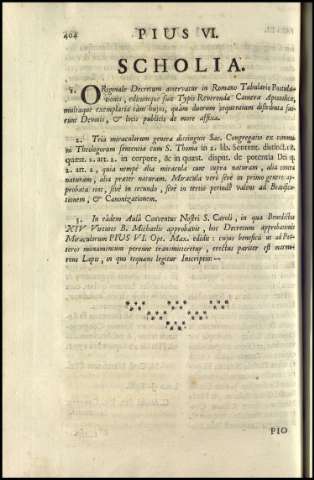 404 PIUS VI.
SCHOLIA.
1. ORiginale Decretum asservatur in Romano Tabulario Postula-
tionis, editumque fuit Typis Reverendæ Cameræ Apostolicæ,
multaque exemplaria tàm hujus, quàm duorum sequentium distributa fue-
runt Devotis, & locis publicis de more affixa.
2. Tria miraculorum genera distinguit Sac. Congregatio ex commu-
ni Theologorum sententia cum S. Thoma in 2. lib. Sentent. distinct. 18.
quæst. 1. art. 2. in corpore, & in quæst. disput. de potentia Dei q.
2. art. 2, quia nempè alia miracula sunt supra naturam, alia contra
naturam, alia præter naturam. Miracula verò sive in primo genere ap-
probata sint, sive in secundo, sive in tertio possunt valere ad Beatifica-
tionem, & Canonizationem.
3. In eâdem Aulâ Conventus Nostri S. Caroli, in qua Benedictus
XIV Virtutes B. Michaelis approbavit, hoc Decretum approbationis
Miraculorum PIUS VI. Opt. Max. edidit: cujus beneficii ut ad Pos-
teros monumentum perenne transmitteretur, erectus pariter est marmo-
reus Lapis, in quo sequens legitur Inscriptio:—
PIO